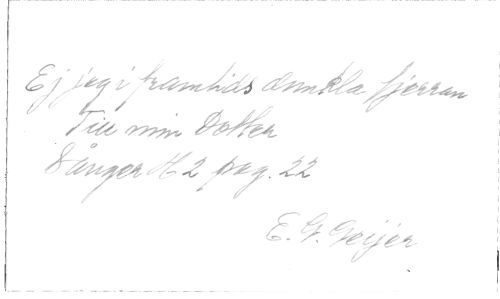 Ej jag i framtids dunkla fjerran
Till min Dotter
Sånger H 2 pag. 22
E. G. Geijer